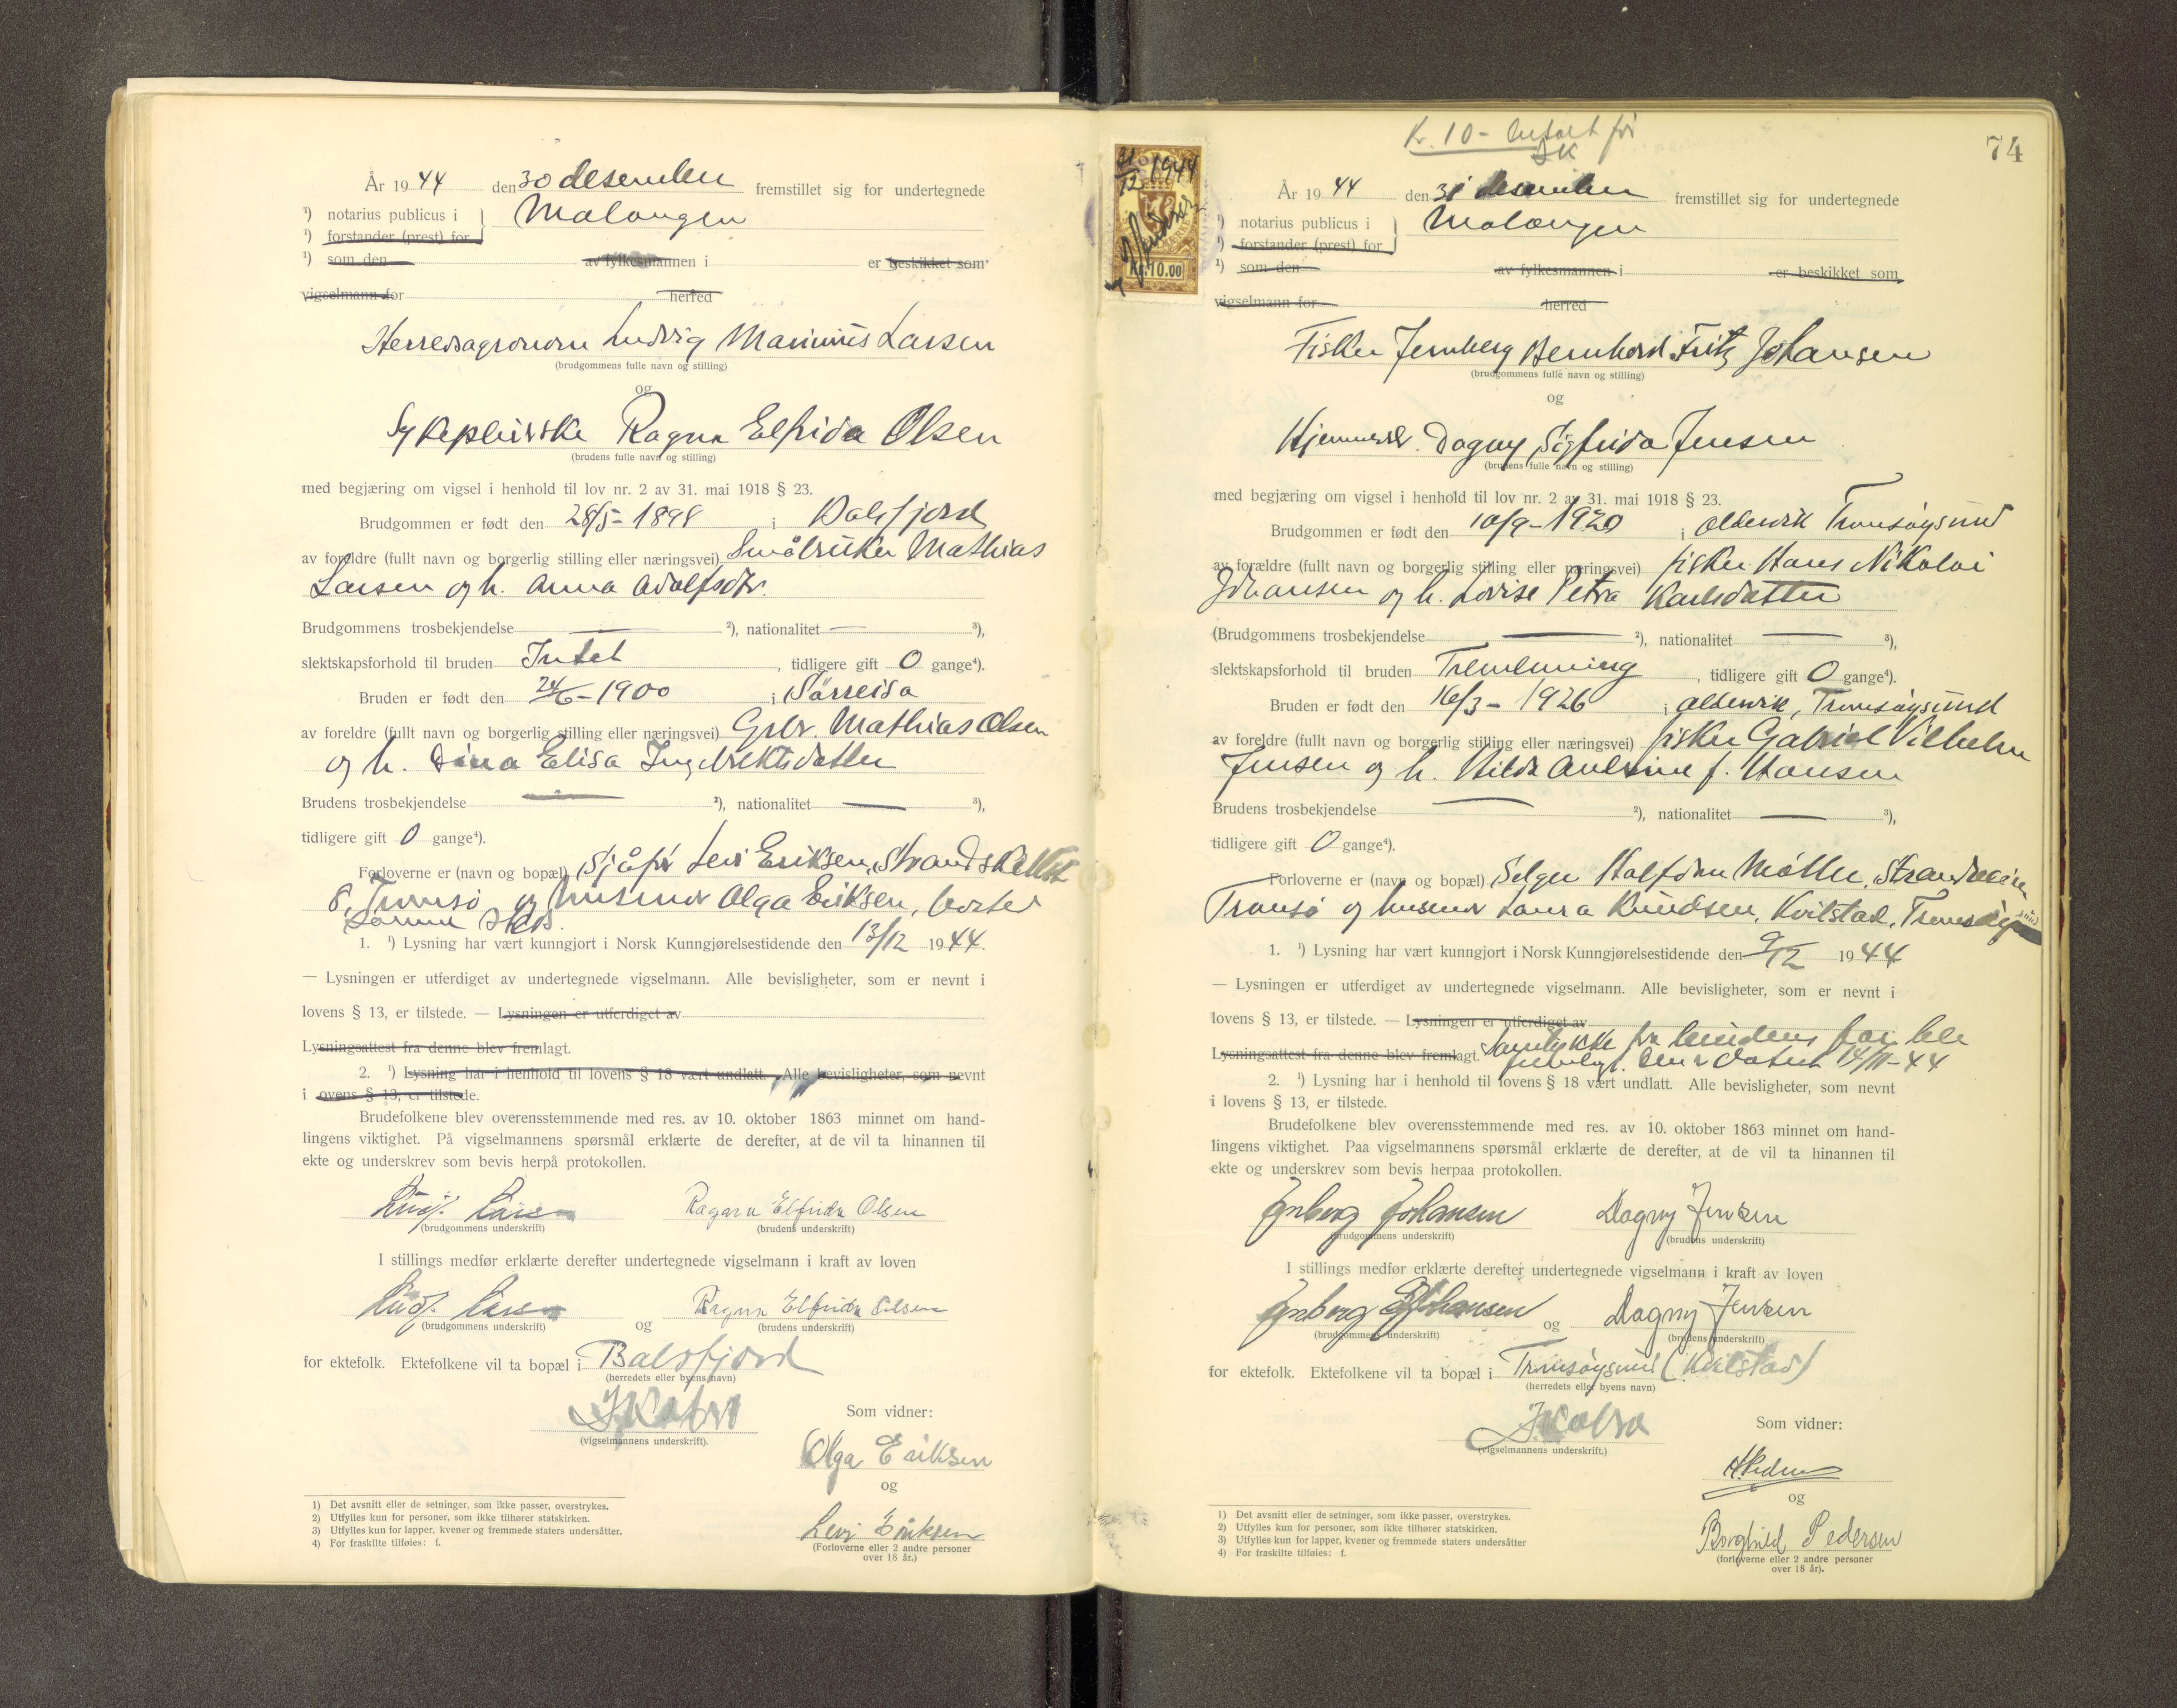 År 1944 den 30 desember fremstillet sig for undertegnede
¹) notarius publicus i } Malangen
¹) forstander (prest) for
¹) som den av fylkesmannen i er beskikket som
vigselmann for herred
Herredsagronom Ludvig Marinius Larsen
(brudgommens fulle navn og stilling)
og
Sykepleierske Ragna Elfrida Olsen
(brudens fulle navn og stilling)
med begjæring om vigsel i henhold til lov nr. 2 av 31. mai 1918 § 23.
Brudgommen er født den 28/5-1898 i Balsfjord
av foreldre (fullt navn og borgerlig stilling eller næringsvei) Småbruker Mathias
Larsen og h. Anna Adolfsdtr.
Brudgommens trosbekjendelse — ²), nationalitet — ³),
slektskapsforhold til bruden Intet, tidligere gift 0 gange⁴).
Bruden er født den 24/6-1900 i Sørreisa
av foreldre (fullt navn og borgerlig stilling eller næringsvei) Grbr. Mathias Olsen
og h. Dina Elisa Ingebrektsdatter
Brudens trosbekjendelse — ²), nationalitet — ³),
tidligere gift 0 gange⁴).
Forloverne er (navn og bopæl) Sjåfør Levi Eriksen, Strandskillet
8, Tromsø og husmor Olga Eriksen, bosted
samme sted.
1. ¹) Lysning har vært kunngjort i Norsk Kunngjørelsestidende den 13/12 1944.
— Lysningen er utferdiget av undertegnede vigselmann. Alle bevisligheter, som er nevnt i
lovens § 13, er tilstede. — Lysningen er utferdiget av
Lysningsattest fra denne blev fremlagt.
2. ¹) Lysning har i henhold til lovens § 18 vært undlatt. Alle bevisligheter, som nevnt
i lovens § 13, er tilstede.
Brudefolkene blev overensstemmende med res. av 10. oktober 1863 minnet om hand-
lingens viktighet. På vigselmannens spørsmål erklærte de derefter, at de vil ta hinannen til
ekte og underskrev som bevis herpå protokollen.
Ludv. Larsen Ragna Elfrida Olsen
(brudgommens underskrift) (brudens underskrift)
I stillings medfør erklærte derefter undertegnede vigselmann i kraft av loven
Ludv. Larsen og Ragna Elfrida Olsen
(brudgommens underskrift) (brudens underskrift)
for ektefolk. Ektefolkene vil ta bopæl i Balsfjord
(herredets eller byens navn)
(vigselmannens underskrift).
Som vidner:
Olga Eriksen
og
Levi Eriksen
(Forloverne eller 2 andre personer
over 18 år.)
1) Det avsnitt eller de setninger, som ikke passer, overstrykes.
2) Utfylles kun for personer, som ikke tilhører statskirken.
3) Utfylles kun for lapper, kvener og fremmede staters undersåtter.
4) For fraskilte tilføies: f.
74
Kr. 10- betalt for
31/12 1944
Kr. 10.00
År 1944 den 31 desember fremstillet sig for undertegnede
¹) notarius publicus i } Malangen
¹) forstander (prest) for
¹) som den av fylkesmannen i er beskikket som
vigselmann for herred
Fisker Jernberg Bernhard Fritz Johansen
(brudgommens fulle navn og stilling)
og
Hjemmevær. Dagny Sigfrida Jensen
(brudens fulle navn og stilling)
med begjæring om vigsel i henhold til lov nr. 2 av 31. mai 1918 § 23.
Brudgommen er født den 10/9-1920 i Oldervik Tromsøysund
av forældre (fullt navn og borgerlig stilling eller næringsvei) fisker Hans Nikolai
Johansen og h. Lovise Petra Karlsdatter
(Brudgommens trosbekjendelse — ²), nationalitet — ³),
slektskapsforhold til bruden Tremenning, tidligere gift 0 gange⁴).
Bruden er født den 16/3-1926 i Oldervik, Tromsøysund
av foreldre (fullt navn og borgerlig stilling eller næringsvei) fisker Gabriel Vilhelm
Jensen og h. Hilda Andrine f. Hansen
Brudens trosbekjendelse — ²), nationalitet — ³),
tidligere gift 0 gange⁴).
Forloverne er (navn og bopæl) Selger Halfdan Møller, Strandveien
Tromsø og husmor Laura Knudsen, Kvilstad, Tromsøysund
1. ¹) Lysning har vært kunngjort i Norsk Kunngjørelsestidende den 9/12 1944
— Lysningen er utferdiget av undertegnede vigselmann. Alle bevisligheter, som er nevnt i
lovens § 13, er tilstede. — Lysningen er utferdiget av
Lysningsattest fra denne blev fremlagt. Samtykke fra brudens far ble
fremlagt. Den er datert 14/11-44
2. ¹) Lysning har i henhold til lovens § 18 vært undlatt. Alle bevisligheter, som nevnt
i lovens § 13, er tilstede.
Brudefolkene blev overensstemmende med res. av 10. oktober 1863 minnet om hand-
lingens viktighet. Paa vigselmannens spørsmål erklærte de derefter, at de vil ta hinannen til
ekte og underskrev som bevis herpaa protokollen.
Jernberg Johansen Dagny Jensen
(brudgommens underskrift) (brudens underskrift)
I stillings medfør erklærte derefter undertegnede vigselmann i kraft av loven
Jernberg Johansen og Dagny Jensen
(brudgommens underskrift) (brudens underskrift)
for ektefolk. Ektefolkene vil ta bopæl i Tromsøysund (Kvilstad)
(herredets eller byens navn)
(vigselmannens underskrift.)
Som vidner:
H. Pedersen
og
Borghild Pedersen
(forloverne eller 2 andre personer
over 18 år).
1) Det avsnitt eller de setninger, som ikke passer, overstrykes.
2) Utfylles kun for personer, som ikke tilhører statskirken.
3) Utfylles kun for lapper, kvener og fremmede staters undersåtter
4) For fraskilte tilføies: f.